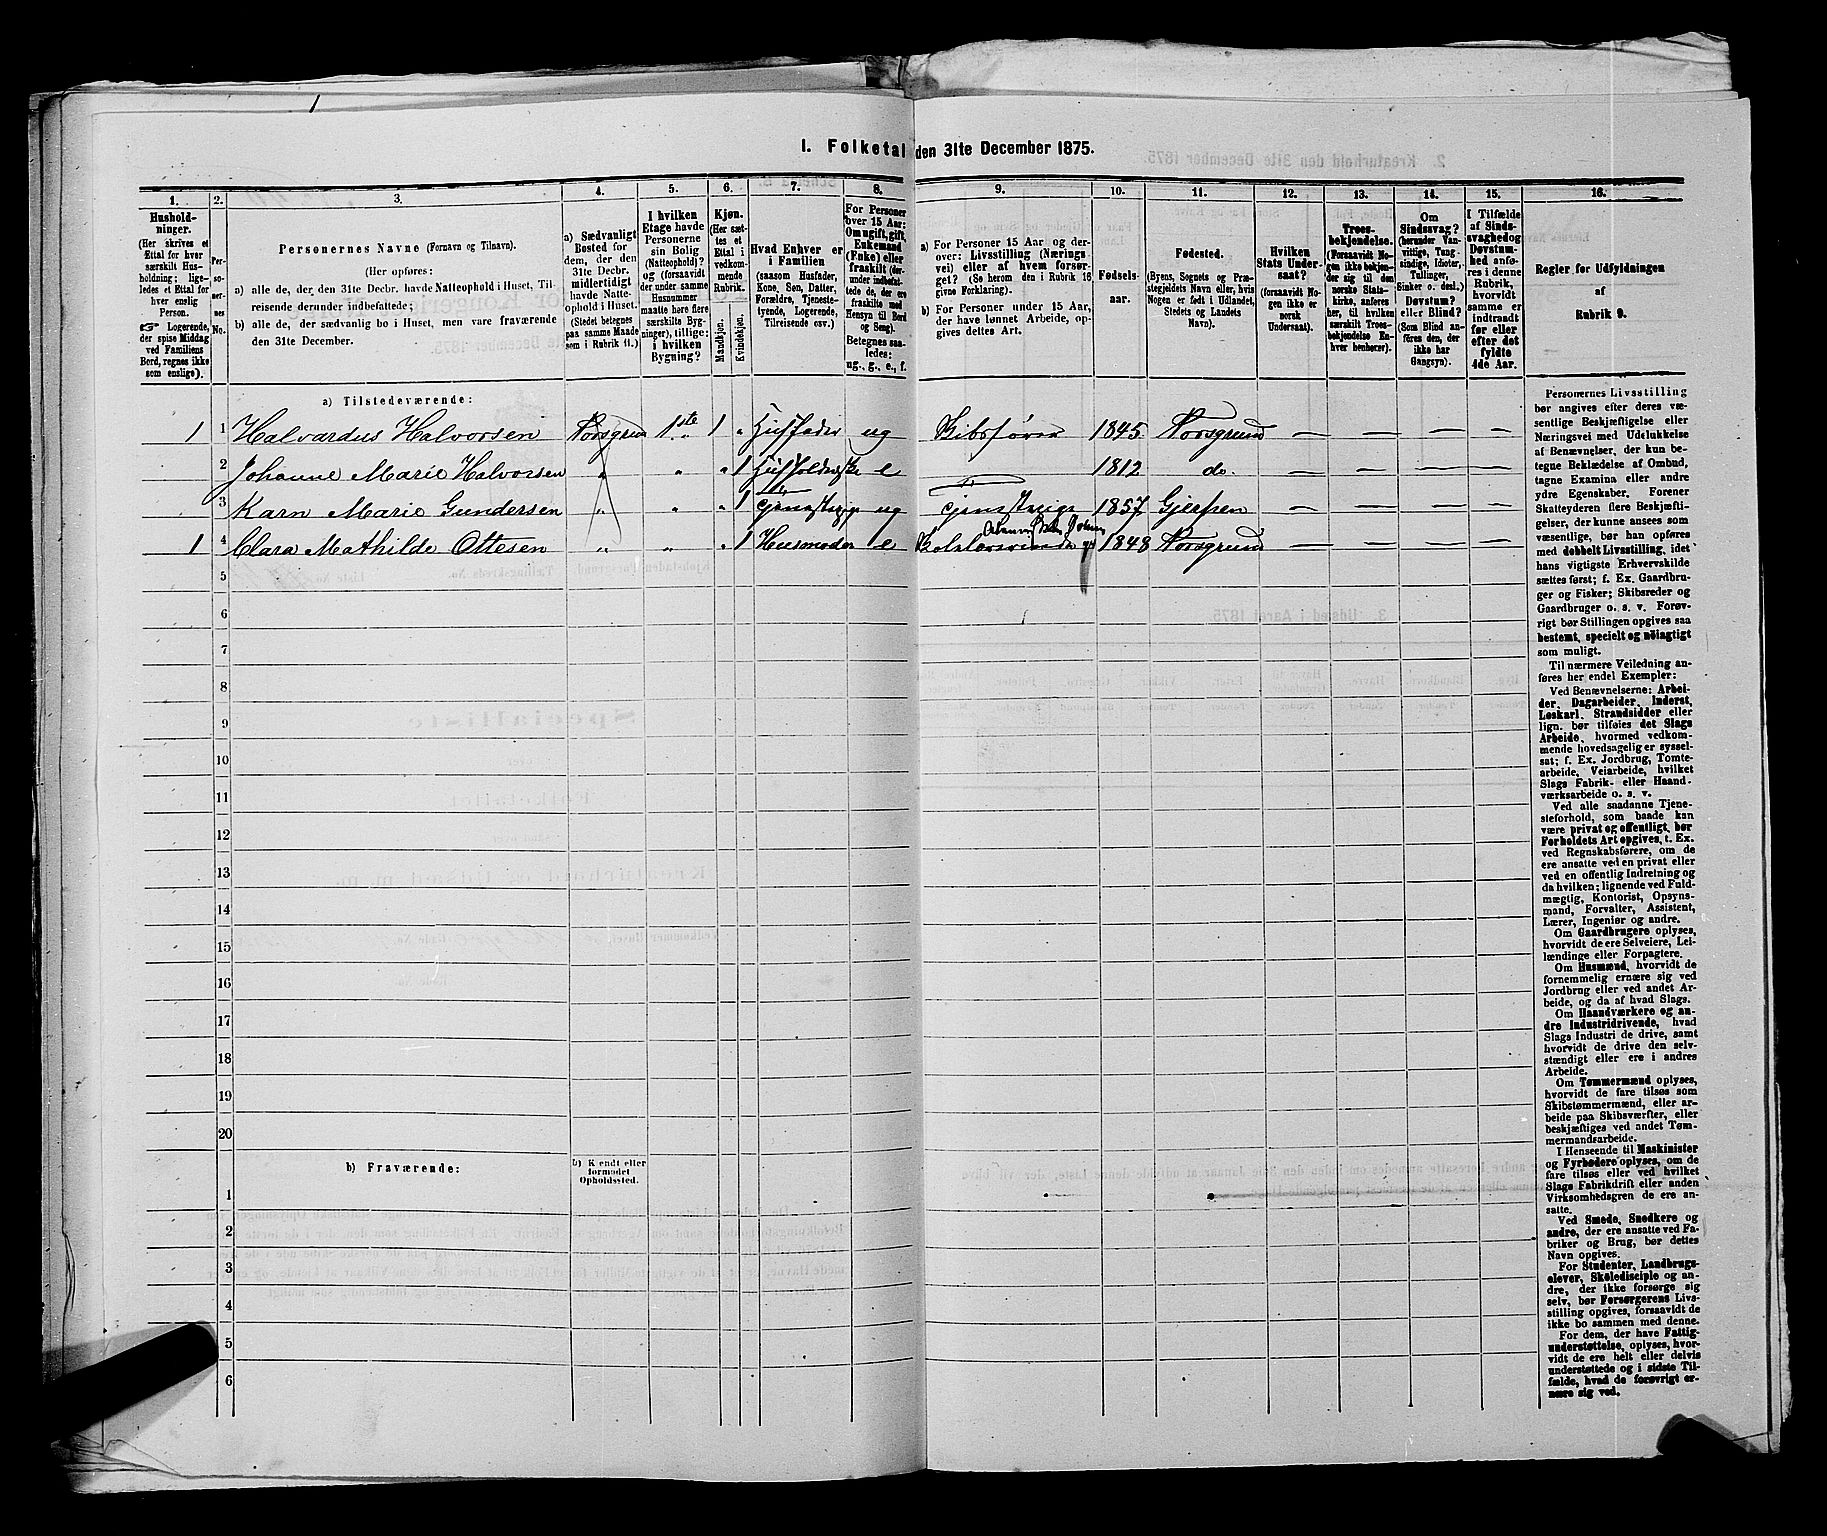 I. Folketal den 31te December 1875.
1. 2. 3. 4. 5. 6. 7. 8. 9. 10. 11. 12. 13. 14. 15. 16.
Hushold-
ninger.
(Her skrives et
Ettal for hver
særskilt Hus-
holdning; lige-
ledes et Ettal for
hver enslig
Person.
☞ Logerende,
der spise Middag
ved Familiens
Bord, regnes ikke
som enslige).
Per-
so-
ner-
nes
No.
Personernes Navne (Fornavn og Tilnavn).
(Her opføres:
a) alle de, der den 31te Decbr. havde Natteophold i Huset, Til-
reisende derunder indbefattede;
b) alle de, der sædvanlig bo i Huset, men vare fraværende
den 31te December.
a) Sædvanligt
Bosted for
dem, der den
31te Decbr.
midlertidigt
havde Natte-
ophold i Huset.
(Stedet betegnes
paa samme Maade
som i Rubrik 11.)
I hvilken
Etage havde
Personerne
sin Bolig
(Natteophold)?
og (forsaavidt
der under samme
Husnummer
maatte høre flere
særskilte Byg-
ninger), tillige:
i hvilken
Bygning?
Kjøn.
(Her sæt-
tes et
Ettal i
vedkom-
mende
Rubrik.
Mandkjøn.
Kvindekjøn.
Hvad Enhver er
i Familien
(saasom Husfader,
Kone, Søn, Datter,
Forældre, Tjeneste-
tyende, Logerende,
Tilreisende osv.)
For Personer
over 15 Aar:
Om ugift, gift,
Enkemand
(Enke) eller
fraskilt (der-
under indbefat-
tede de, der ere
fraskilte med
Hensyn til Bord
og Seng).
Betegnes saa-
ledes:
ug., g., e., f.
a) For Personer 15 Aar og der-
over: Livsstilling (Nærings-
vei) eller af hvem forsør-
get? (Se herom den i Rubrik 16
givne Forklaring).
b) For Personer under 15 Aar,
der have lønnet Arbeide, op-
gives dettes Art.
Fødsels-
aar.
Fødested.
(Byens, Sognets og Præ-
stegjeldets Navn eller, hvis
Nogen er født i Udlandet,
Stedets og Landets
Navn).
Hvilken
Stats Under-
saat?
(forsaavidt No-
gen ikke er
norsk
Undersaat).
Troes-
bekjendelse.
(Forsaavidt No-
gen ikke bekjen-
der sig til den
norske Stats-
kirke, anføres
her, til hvilken
særskilt Troes-
bekjendelse En-
hver henhører).
Om
Sindssvag?
(herunder Van-
vittige, Tung-
sindige, Idioter,
Tullinger,
Sinker o. desl.)
Døvstum?
eller Blind?
(Som Blind an-
føres den, der
ikke har
Gangsyn).
I Tilfælde
af Sinds-
svaghed og
Døvstum-
hed anføres
i denne
Rubrik,
hvorvidt
samme er
indtraadt
før eller
efter det
fyldte
4de Aar.
Regler for Udfyldningen
af
Rubrik 9.
a) Tilstedeværende:
1 1 Halvardus Halvorsen Porsgrund 1ste 1 " Husfader ug Skibsfører 1845 Porsgrund — — — —
2 Johanne Marie Halvorsen " " " 1 e 1812 do. — — — —
3 Karn Marie Gundersen " " 1 ug 1857 Gjerpen — — — —
1 4 Clara Mathilde Ottesen " " " 1 Husmoder e 1848 Porsgrund — — — —
5
6
7
8
9
10
11
12
13
14
15
16
17
18
19
20
b) Fraværende:
b) Kjendt eller
formodet
Opholdssted.
1
2
3
4
5
6
Personernes Livsstilling
bør angives efter deres væ-
sentlige Beskjæftigelse eller
Næringsvei med Udelukkelse
af Benævnelser, der kun be-
tegne Beklædelse af Ombud,
tagne Examina eller andre
ydre Egenskaber. Forener
Skatteyderen flere Beskjæfti-
gelser, der kunne ansees som
væsentlige, bør han opføres
med dobbelt Livsstilling, idet
hans vigtigste Erhvervskilde
sættes først; f. Ex. Gaardbru-
ger og Fisker; Skibsreder og
Gaardbruger o. s. v. Forøv-
rigt bør Stillingen opgives saa
bestemt, specielt og nøiagtigt
som muligt.
Til nærmere Veiledning an-
føres her endel Exempler:
Ved Benævnelserne: Arbei-
der, Dagarbeider, Inderst,
Løskarl, Strandsidder eller
lign. bør tilføies det Slags
Arbeide, hvormed vedkom-
mende hovedsagelig er syssel-
sat; f. Ex. Jordbrug, Tomte-
arbeide, Veiarbeide, hvilket
Slags Fabrik- eller Haand-
værksarbeide o. s. v.
Ved alle saadanne Tjene-
steforhold, som baade kan
være privat og offentligt, bør
Forholdets Art opgives, t. Ex.
ved Regnskabsførere, om de
ere ansatte ved en privat eller
ved en offentlig Indretning og
da hvilken; lignende ved Fuld-
mægtig, Kontorist, Opsyns-
mand, Forvalter, Assistent,
Lærer, Ingeniør og andre.
Om Gaardbrugere oplyses,
hvorvidt de ere Selveiere, Lei-
lændinge eller Forpagtere.
Om Husmænd, hvorvidt de
fornemmelig ernære sig ved
Jordbrug eller ved andet Ar-
beide, og da af hvad Slags.
Om Haandværkere og an-
dre Industridrivende, hvad
Slags Industri de drive, samt
hvorvidt de drive den selv-
stændigt eller ere i andres
Arbeide.
Om Tømmermænd oplyses,
hvorvidt de fare tilsøs som
Skibstømmermænd, eller ar-
beide paa Skibsværfter, eller
beskjæftiges ved andet Tøm-
mermandsarbeide.
I Henseende til Maskinister
og Fyrbødere oplyses, om de
fare tilsøs eller ved hvilket
Slags Fabrikdrift eller anden
Virksomhedsgren de ere an-
satte.
Ved Smede, Snedkere og
andre, der ere ansatte ved Fa-
briker og Brug, bør dettes
Navn opgives.
For Studenter, Landbrugs-
elever, Skoledisciple og an-
dre, der ikke forsørge sig
selv, bør Forsørgerens Livs-
stilling opgives, forsaavidt de
ikke bo sammen med denne.
For dem, der have Fattig-
understøttelse, oplyses, hvor-
vidt de ere helt eller delvis
understøttede og i sidste Til-
fælde, hvad de forøvrigt er-
nære sig ved.